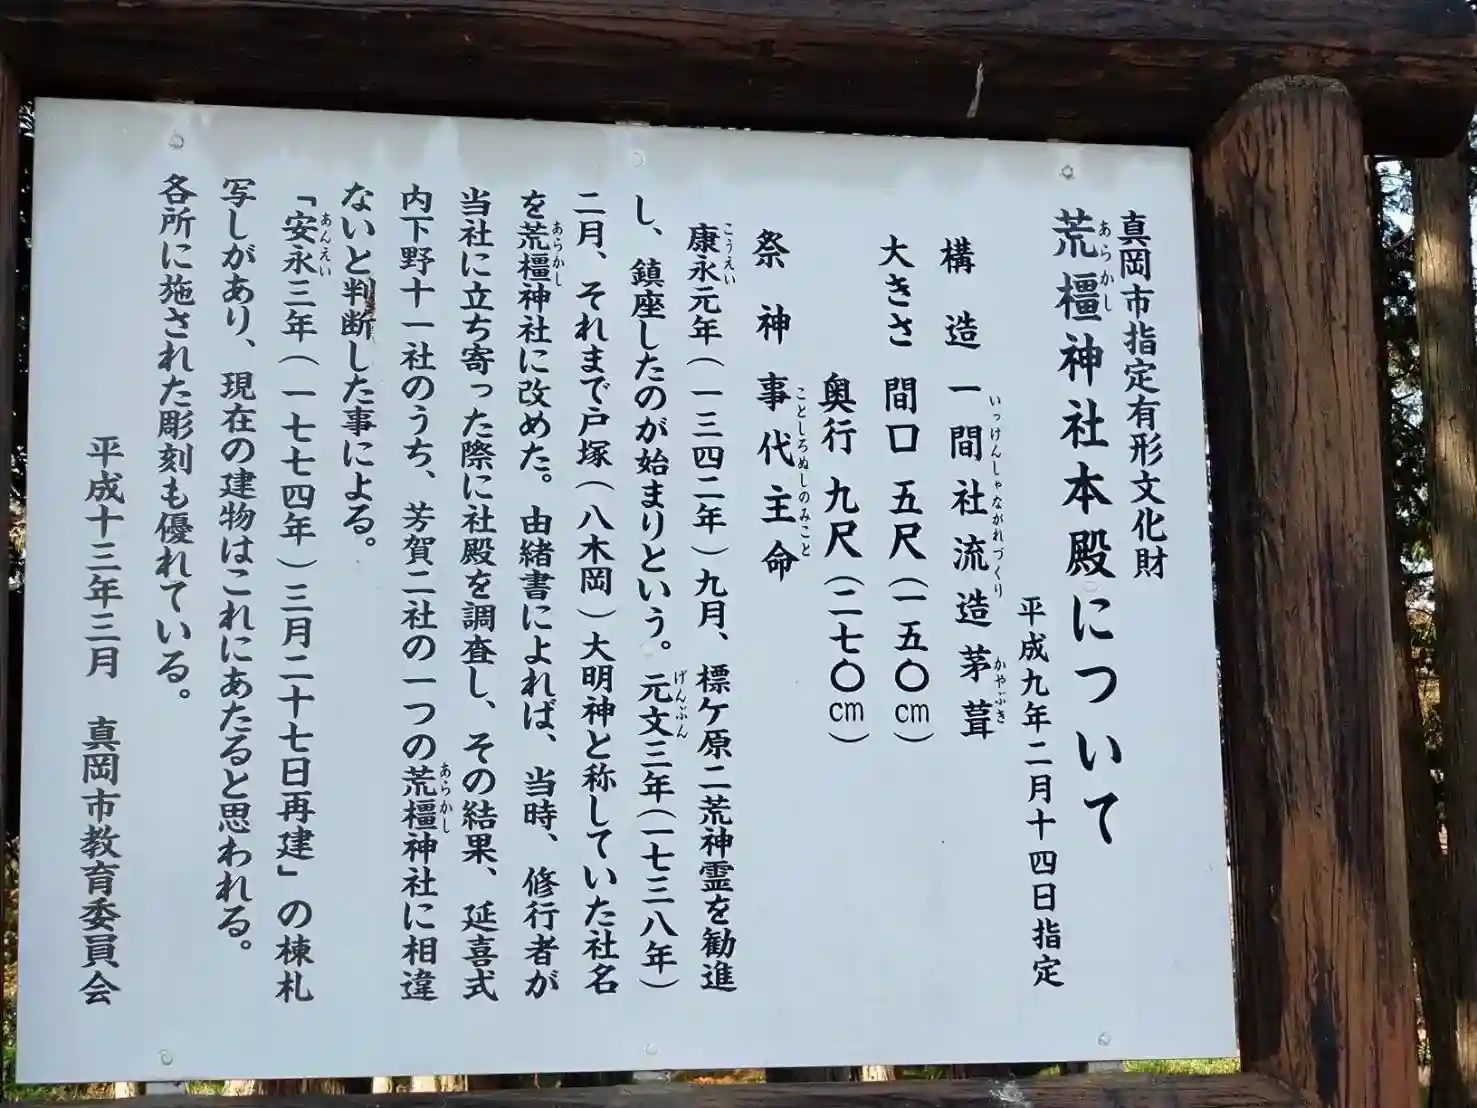 真岡市指定有形文化財
荒橿神社本殿について
あらかし
平成九年二月十四日指定
構造 一間社流造茅葺
いっけんしゃながれづくり かやぶき
大きさ 間口 五尺(一五〇cm)
奥行 九尺(二七〇cm)
祭神 事代主命
ことしろぬしのみこと
康永元年(一三四二年)九月、標ケ原二荒神霊を勧進
こうえい
し、鎮座したのが始まりという。元文三年(一七三八年)
げんぶん
二月、それまで戸塚(八木岡)大明神と称していた社名
を荒橿神社に改めた。由緒書によれば、当時、修行者が
あらかし
当社に立ち寄った際に社殿を調査し、その結果、延喜式
内下野十一社のうち、芳賀二社の一つの荒橿神社に相違
あらかし
ないと判断した事による。
「安永三年(一七七四年)三月二十七日再建」の棟札
あんえい
写しがあり、現在の建物はこれにあたると思われる。
各所に施された彫刻も優れている。
平成十三年三月 真岡市教育委員会